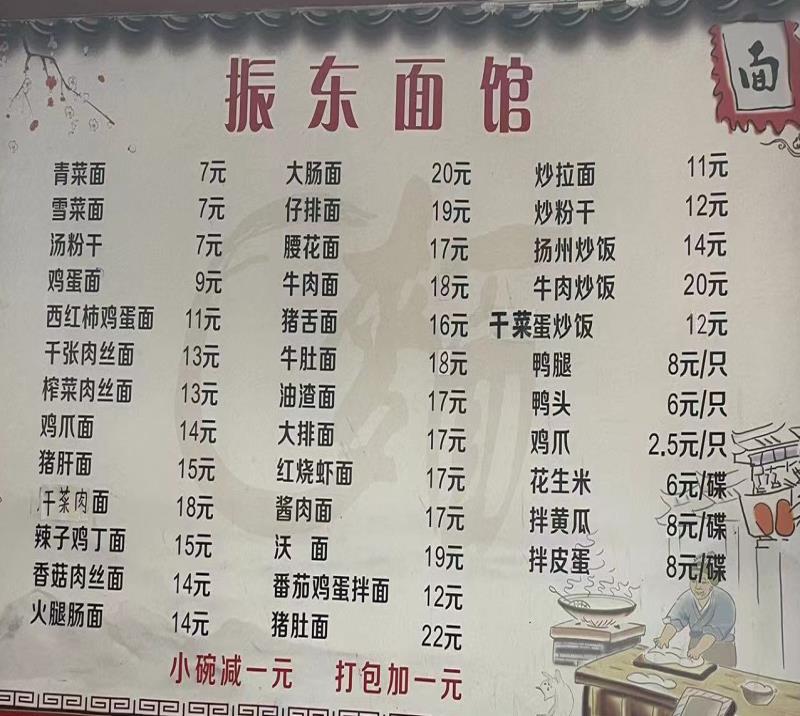 振东面馆
面
青菜面 7元
雪菜面 7元
汤粉干 7元
鸡蛋面 9元
西红柿鸡蛋面 11元
千张肉丝面 13元
榨菜肉丝面 13元
鸡爪面 14元
猪肝面 15元
干菜肉面 18元
辣子鸡丁面 15元
香菇肉丝面 14元
火腿肠面 14元
大肠面 20元
仔排面 19元
腰花面 17元
牛肉面 18元
猪舌面 16元
牛肚面 18元
油渣面 17元
大排面 17元
红烧虾面 17元
酱肉面 17元
沃 面 19元
番茄鸡蛋拌面 12元
猪肚面 22元
炒拉面 11元
炒粉干 12元
扬州炒饭 14元
牛肉炒饭 20元
干菜蛋炒饭 12元
鸭腿 8元/只
鸭头 6元/只
鸡爪 2.5元/只
花生米 6元/碟
拌黄瓜 8元/碟
拌皮蛋 8元/碟
小碗减一元 打包加一元